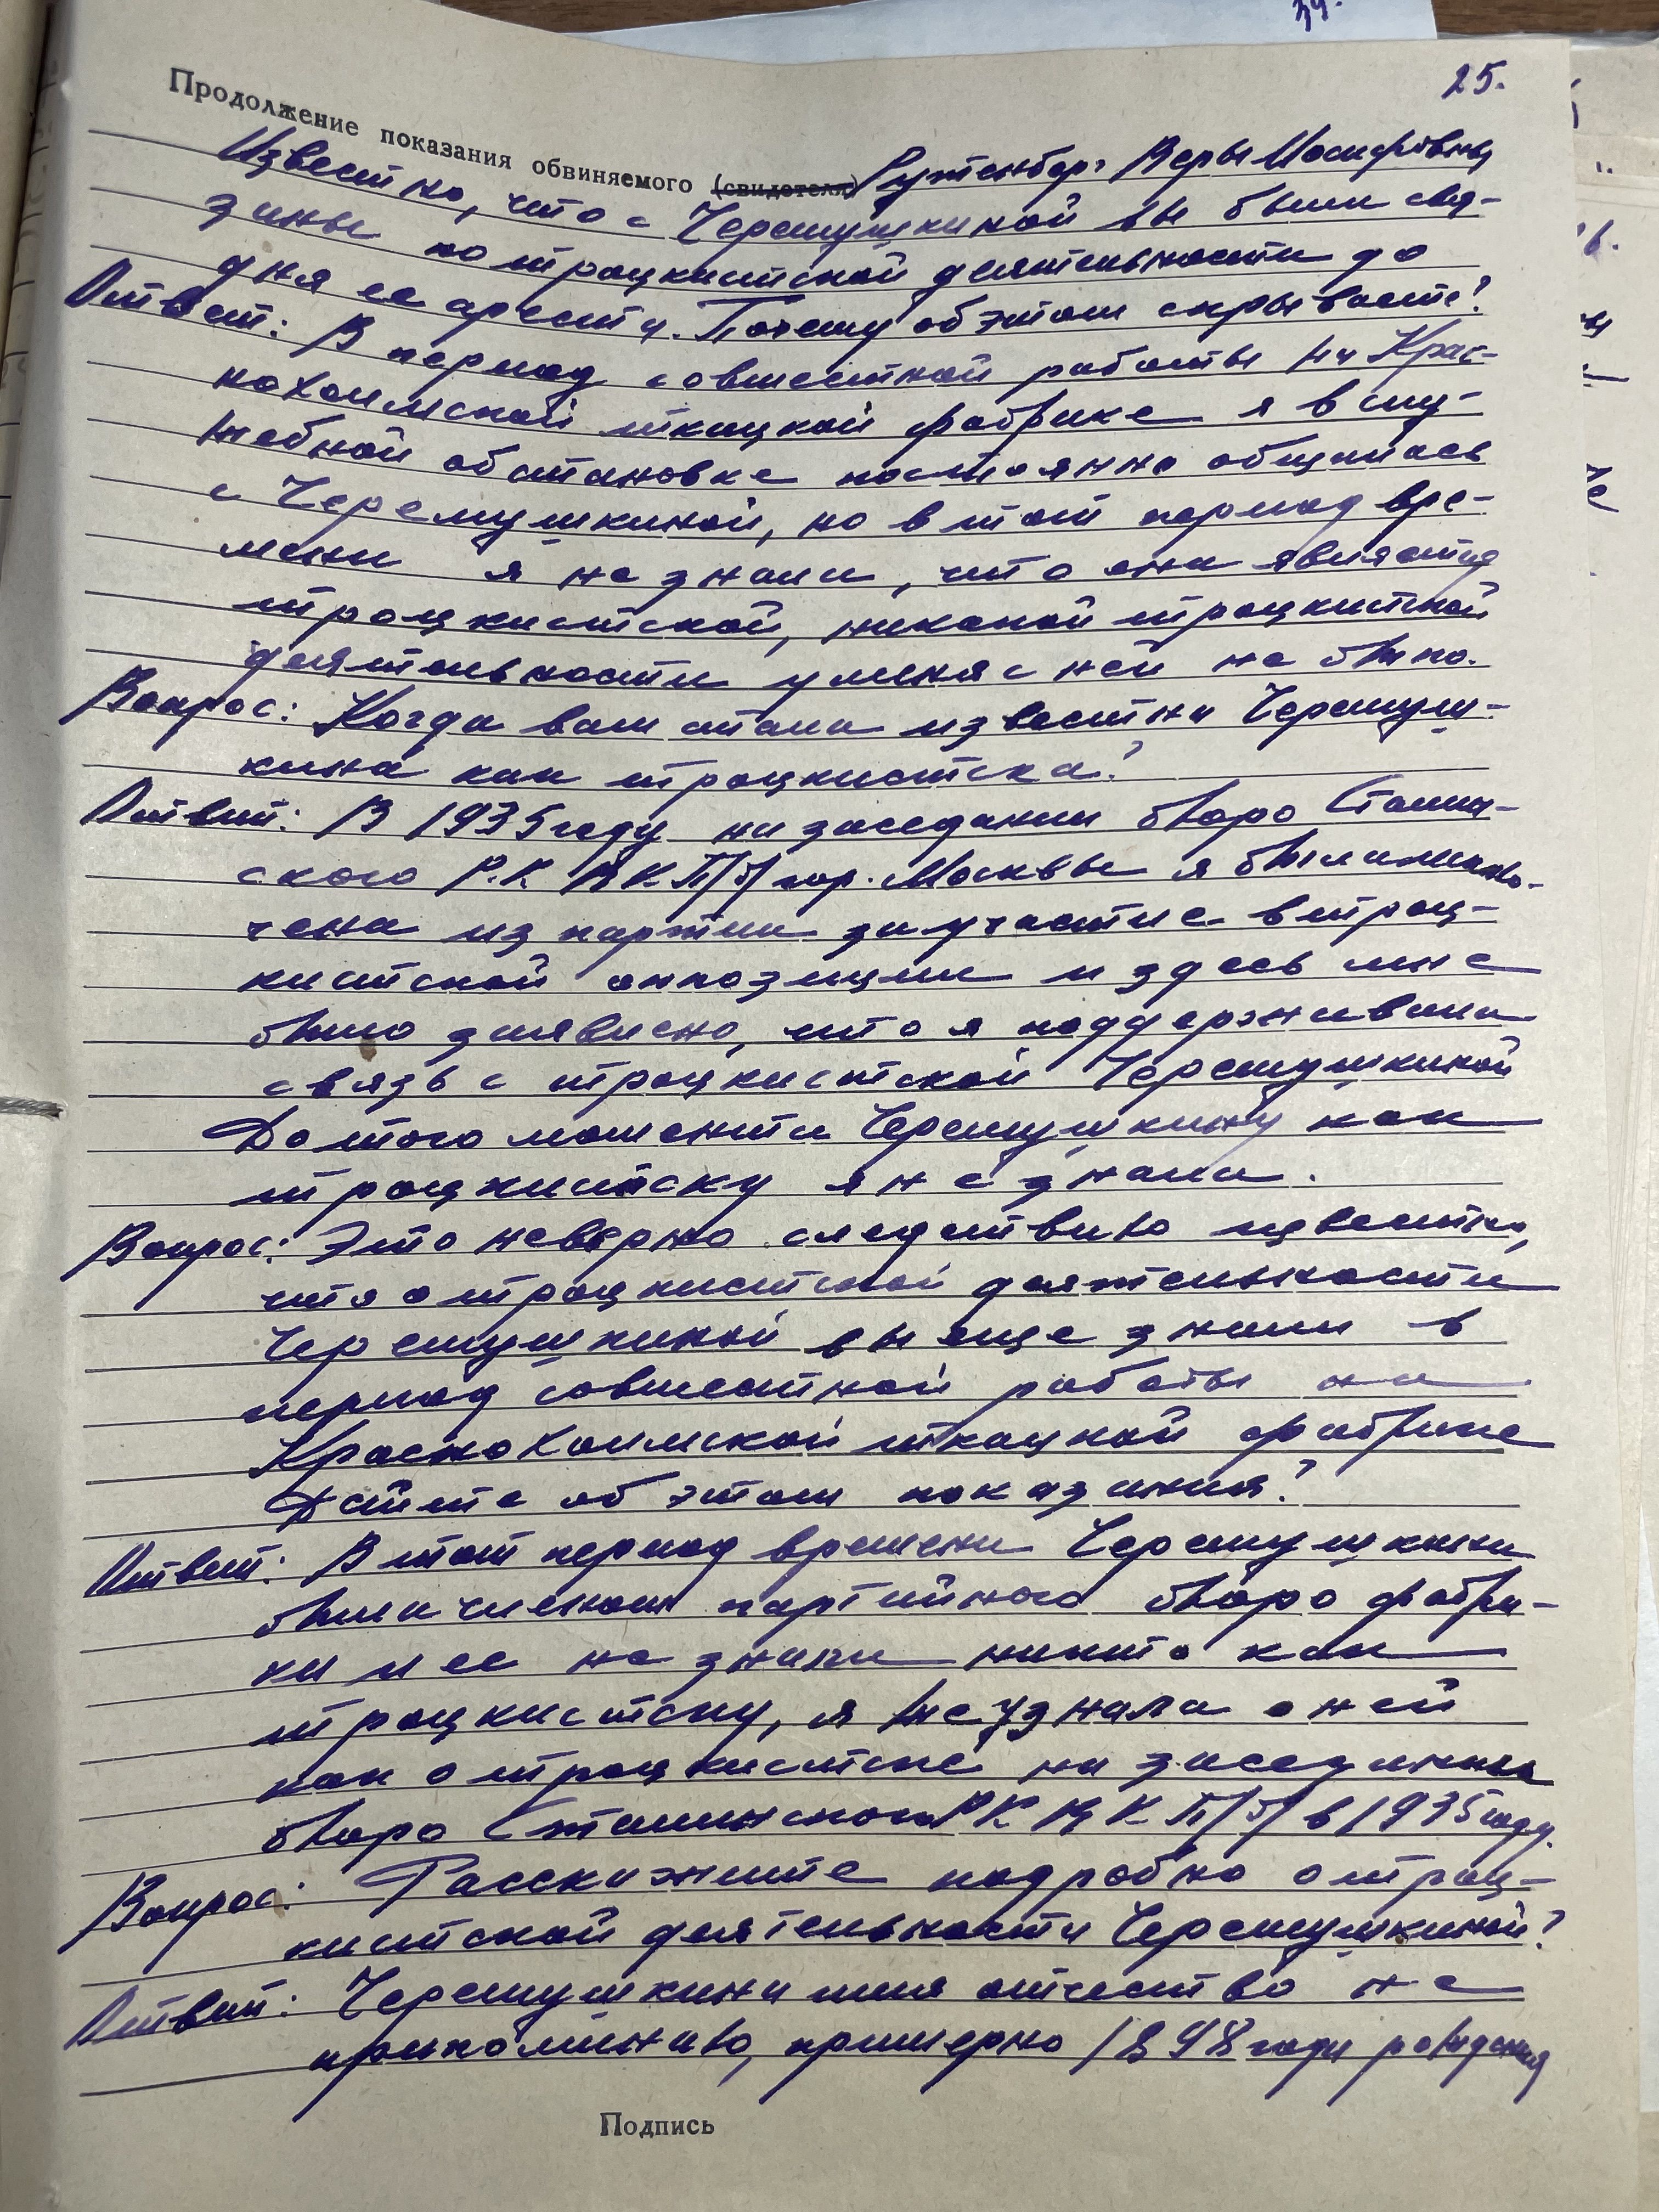 25.
Продолжение показания обвиняемого (свидетеля) Рутенберг Веры Иосифовны
Известно, что с Черемушкиной вы были свя-
заны по троцкистской деятельности до
дня ее ареста. Почему об этом скрываете?
Ответ: В период совместной работы на Крас-
нохолмской ткацкой фабрике я в слу-
жебной обстановке постоянно общалась
с Черемушкиной, но в тот период вре-
мени я не знала, что она является
троцкистской, никакой троцкистской
деятельности у меня с ней не было.
Вопрос: Когда вам стала известна Черемуш-
кина как троцкистска?
Ответ: В 1935 году на заседании бюро Сталин-
ского Р.К ВКП/б/ гор. Москвы я была исклю-
чена из партии за участие в троц-
кистской оппозиции и здесь мне
было заявлено, что я поддерживала
связь с троцкистской Черемушкиной
До того момента Черемушкину как
троцкистску я не знала.
Вопрос: Это неверно следствию известно,
что о троцкистской деятельности
Черемушкиной вы еще знали в
период совместной работы на
Краснохолмской ткацкой фабрике
Дайте об этом показания?
Ответ: В тот период времени Черемушкина
была членом партийного бюро фабри-
ки и ее не знали никто как
троцкистску, я же узнала о ней
как о троцкистке на заседании
бюро Сталинского РК ВКП/б/ в 1935 году.
Вопрос: Расскажите подробно о троц-
кистской деятельности Черемушкиной?
Ответ: Черемушкина имя отчество не
припоминаю, примерно 1898 года рождения
Подпись